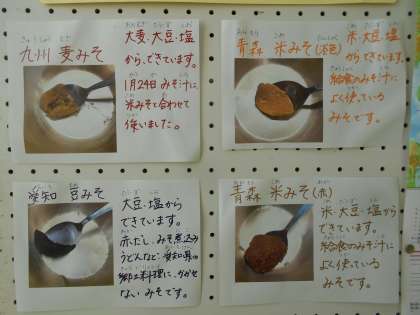 九州 麦みそ
大麦・大豆・塩
から、できています。
1月24日 みそ汁に
米みそと合わせて
使いました。
青森 米みそ
米・大豆・塩
からできています。
給食のみそ汁に
よく使っている
みそです。
愛知 豆みそ
大豆・塩から
できています。
赤だし、みそ煮込み
うどんなど、愛知県の
郷土料理に、かかせ
ないみそです。
青森 米みそ(赤)
米・大豆・塩から
できています。
給食のみそ汁に
よく使っている
みそです。